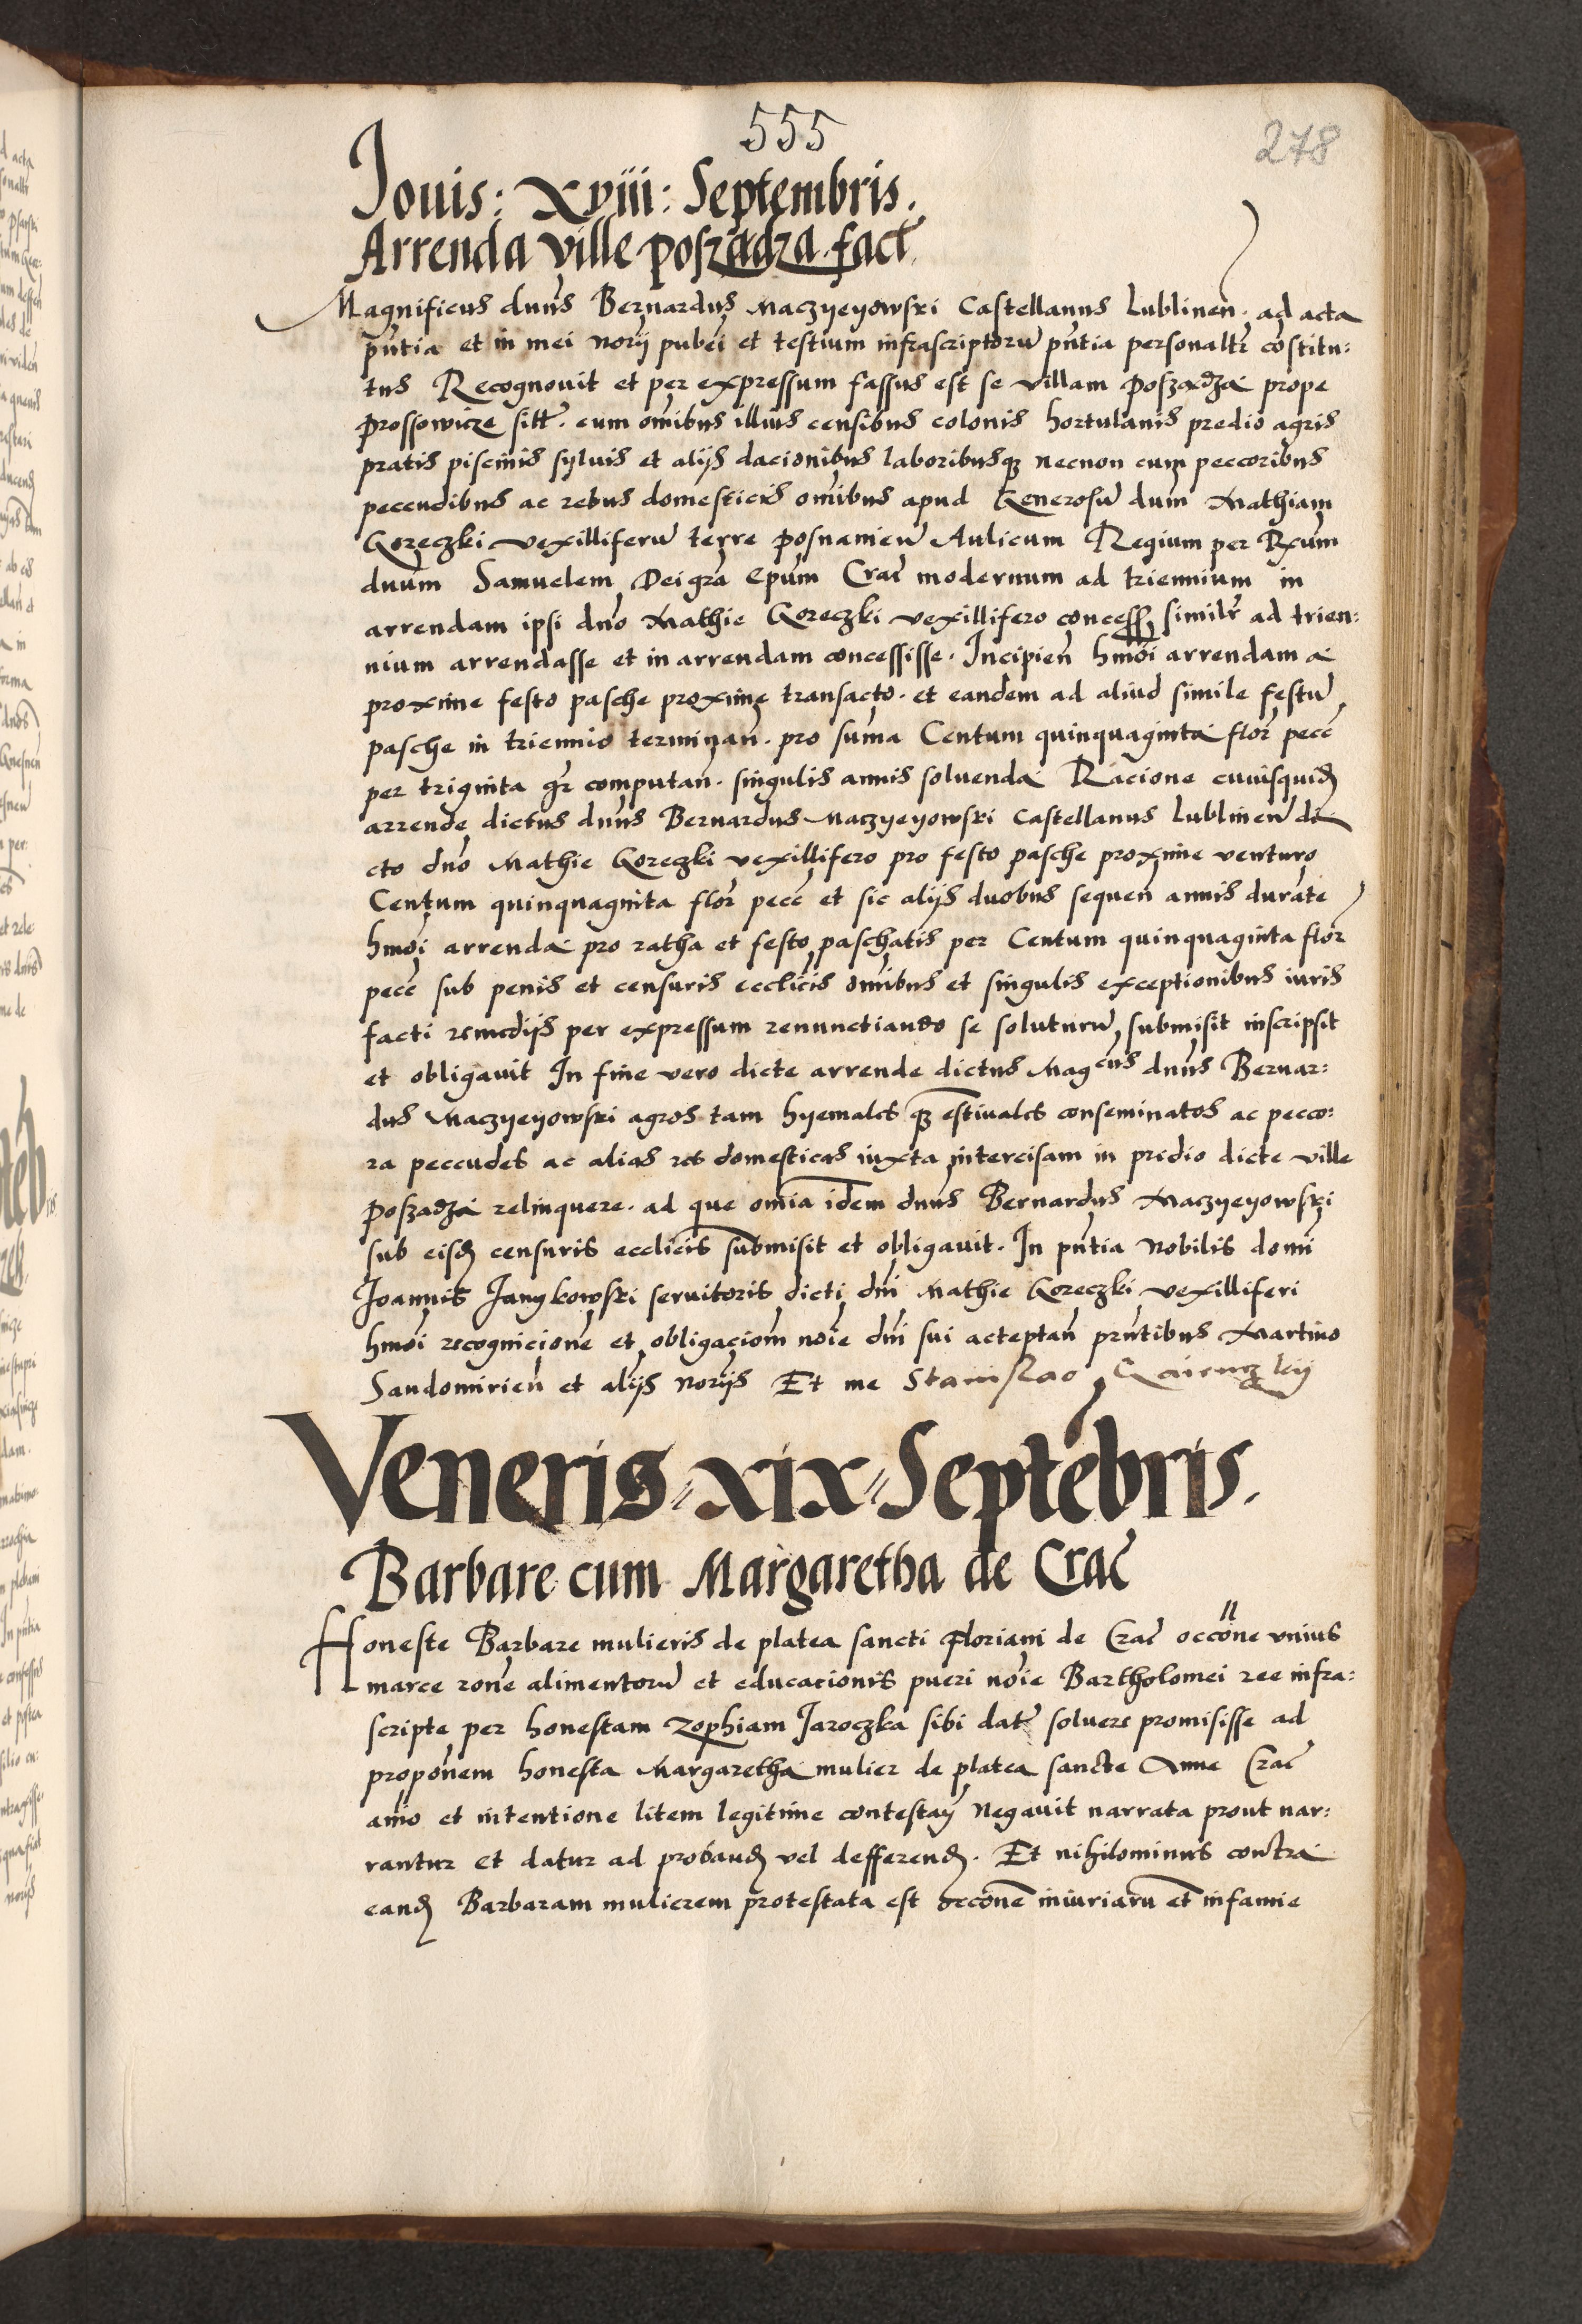 555
278
Jouis: Xviii: Septembris.
Arrenda ville poszadza fact
Magnificus dnns Bernardus Maczyeyowski Castellanus Lublinen. ad acta
pntia et in mei norij pubci et testium infrascriptoru pntia personaltr costitu:
tus Recognouit et per expressum fassus est se villam poszadza prope
prossowicze sitt. cum omibus illius censibus colonis hortulanis predio agris
pratis piscinis syluis et alijs dacionibus laboribusq necnon cum peccoribus
peccudibus ac rebus domesticis omibus apud Generosu dum Mathiam
Goreczki vexilliferu terre posnanien Aulicum Regium per Rxum
dnum Samuelem Dei gra Epum Crac modernum ad triennium in
arrendam ipsi dno Mathie Goreczki vexillifero concess similr ad trien:
nium arrendasse et in arrendam concessisse. Incipien hmoi arrendam a
proxime festo pasche proxime transacto. et eandem ad aliud simile festu
pasche in triennio terminan. pro suma Centum quinquaginta flor pecc
per triginta gr computan. singulis annis soluenda Racione cuiusquid
arrende dictus dnns Bernardus Maczyeyowski Castellanus Lublinen di
cto dno Mathie Goreczki vexillifero pro festo pasche proxime venturo
Centum quinquaginta flor pecc et sic alijs duobus sequen annis durate
hmoi arrenda pro ratha et festo paschatis per Centum quinquaginta flor
pecc sub penis et censuris ecclicis omibus et singulis exceptionibus iuris
facti remedijs per expressum renunctiando se soluturu submisit inscripsit
et obligauit In fine vero dicte arrende dictus Magcus dnns Bernar:
dus Maczyeyowski agros tam hyemales q estiuales conseminatos ac pecco:
ra peccudes ac alias res domesticas iuxta intercisam in predio dicte ville
poszadza relinquere. ad que omia idem dnns Bernardus Maczyeyowski
sub eisd censuris ecclicis submisit et obligauit. In pntia Nobilis domi
Joannis Janykowski seruitoris dicti dni Mathie Goreczki vexilliferi
hmoi recognicione et obligaciom noie dni sui acteptan prntibus Martino
Sandomirien et alijs norijs Et me Stanislao
Veneris xix Septebris.
Barbare cum Margaretha de Crac
Honeste Barbare mulieris de platea sancti floriani de Crac occone vnius
marce rone alimentoru et educacionis pueri noie Bartholomei ree infra:
scripte per honestam Zophiam Jaroczka sibi dat soluere promisisse ad
proponem honesta Margaretha mulier de platea sancte Anne Crac
anio et intentione litem legitime contestan Negauit narrata prout nar:
rantur et datur ad proband vel defferend. Et nihilominus contra
eand Barbaram mulierem protestata est occone iniuriaru et infamie